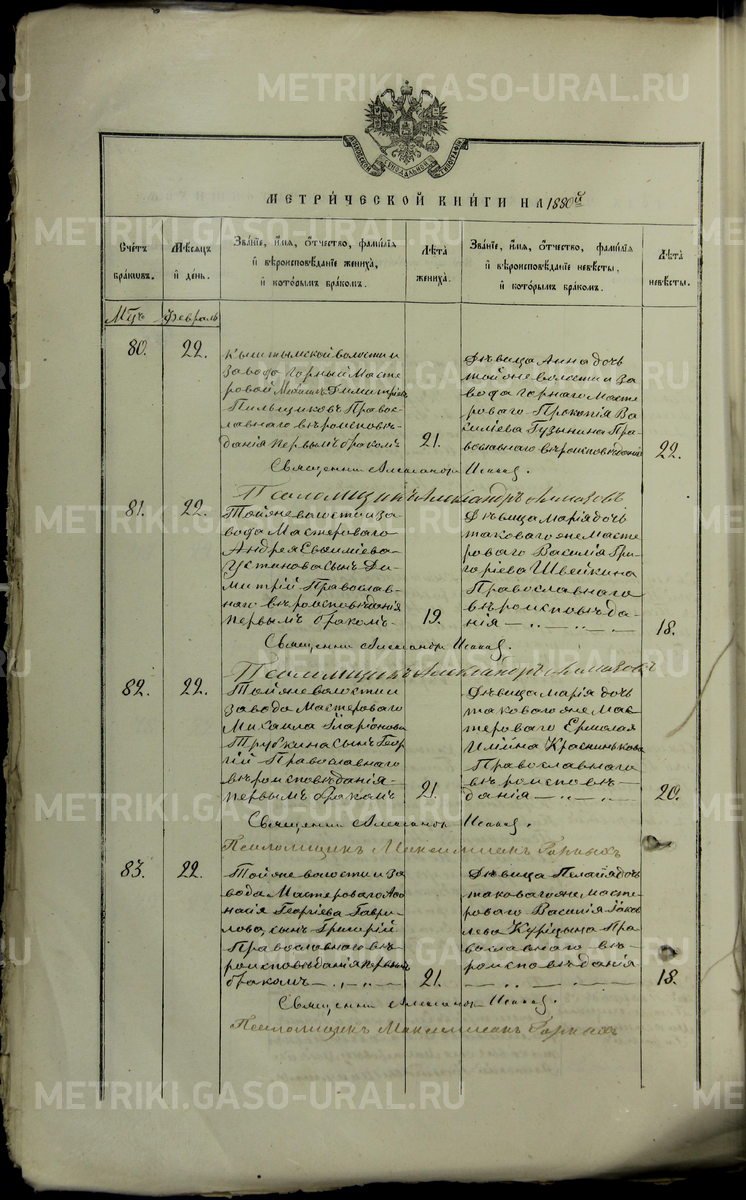 METRIKI.GASO-URAL.RU
МЕТРИ́ЧЕСКОЙ КНИ́ГИ НА 1880й
Счётъ бра́ковъ.
Мѣсяцъ и де́нь.
Зва́нїе, и́мѧ, ѻ́тчество, фами́лїѧ
и вѣроисповѣ́данїе жениха̀,
и кото́рымъ бра́комъ.
Лѣта̀ жениха̀.
Зва́нїе, и́мѧ, ѻ́тчество, фами́лїѧ
и вѣроисповѣ́данїе невѣ́сты,
и кото́рымъ бра́комъ.
Лѣта̀ невѣ́сты.
Мцъ Февраль
80.
22.
Кыштымской волости и
завода горный Масте
ровой Димитріевъ
Пильщиковъ Право
славнаго вѣроисповѣ
данія первымъ бракомъ
21.
Дѣвица Анна дочь
той же волости и за
вода горнаго масте
роваго Прокопія Ва
силіева Гузынина Пра
вославнаго вѣроисповѣданія
22.
Священни Александръ
Псаломщикъ Александръ
81.
22.
Той же волости и за
вода Мастероваго
Андрея Евѳиміева
Устинова сынъ Ди
митрій Православ
наго вѣроисповѣданія
первымъ бракомъ
19.
Дѣвица Марія дочь
таковаго же Масте
роваго Василія Гри
горіева Швейкина
Православнаго
вѣроисповѣда
нія — „ — „ —
18.
Священни Александръ
Псаломщикъ Александръ
82.
22.
Той же волости и
завода Мастероваго
Михаила Иларіонова
Трубкина сынъ Геор
гій Православнаго
вѣроисповѣданія
первымъ бракомъ
21.
Дѣвица Марія дочь
таковаго же Мас
тероваго Ермолая
Православнаго
вѣроисповѣ
данія — „ — „ —
20.
Священни Александръ
Псаломщикъ Максимиліанъ
83.
22.
Той же волости и за
вода Мастероваго Аѳо
насія Георгіева Гаври
лова, сынъ Григорій
Православнаго вѣ
роисповѣданія первымъ
бракомъ — „ — „ —
21.
Дѣвица дочь
таковаго же масте
роваго Василія Іаков
лева Курицына Пра
вославнаго вѣ
роисповѣданія
18.
Священни Александръ
Псаломщикъ Максимиліанъ
METRIKI.GASO-URAL.RU